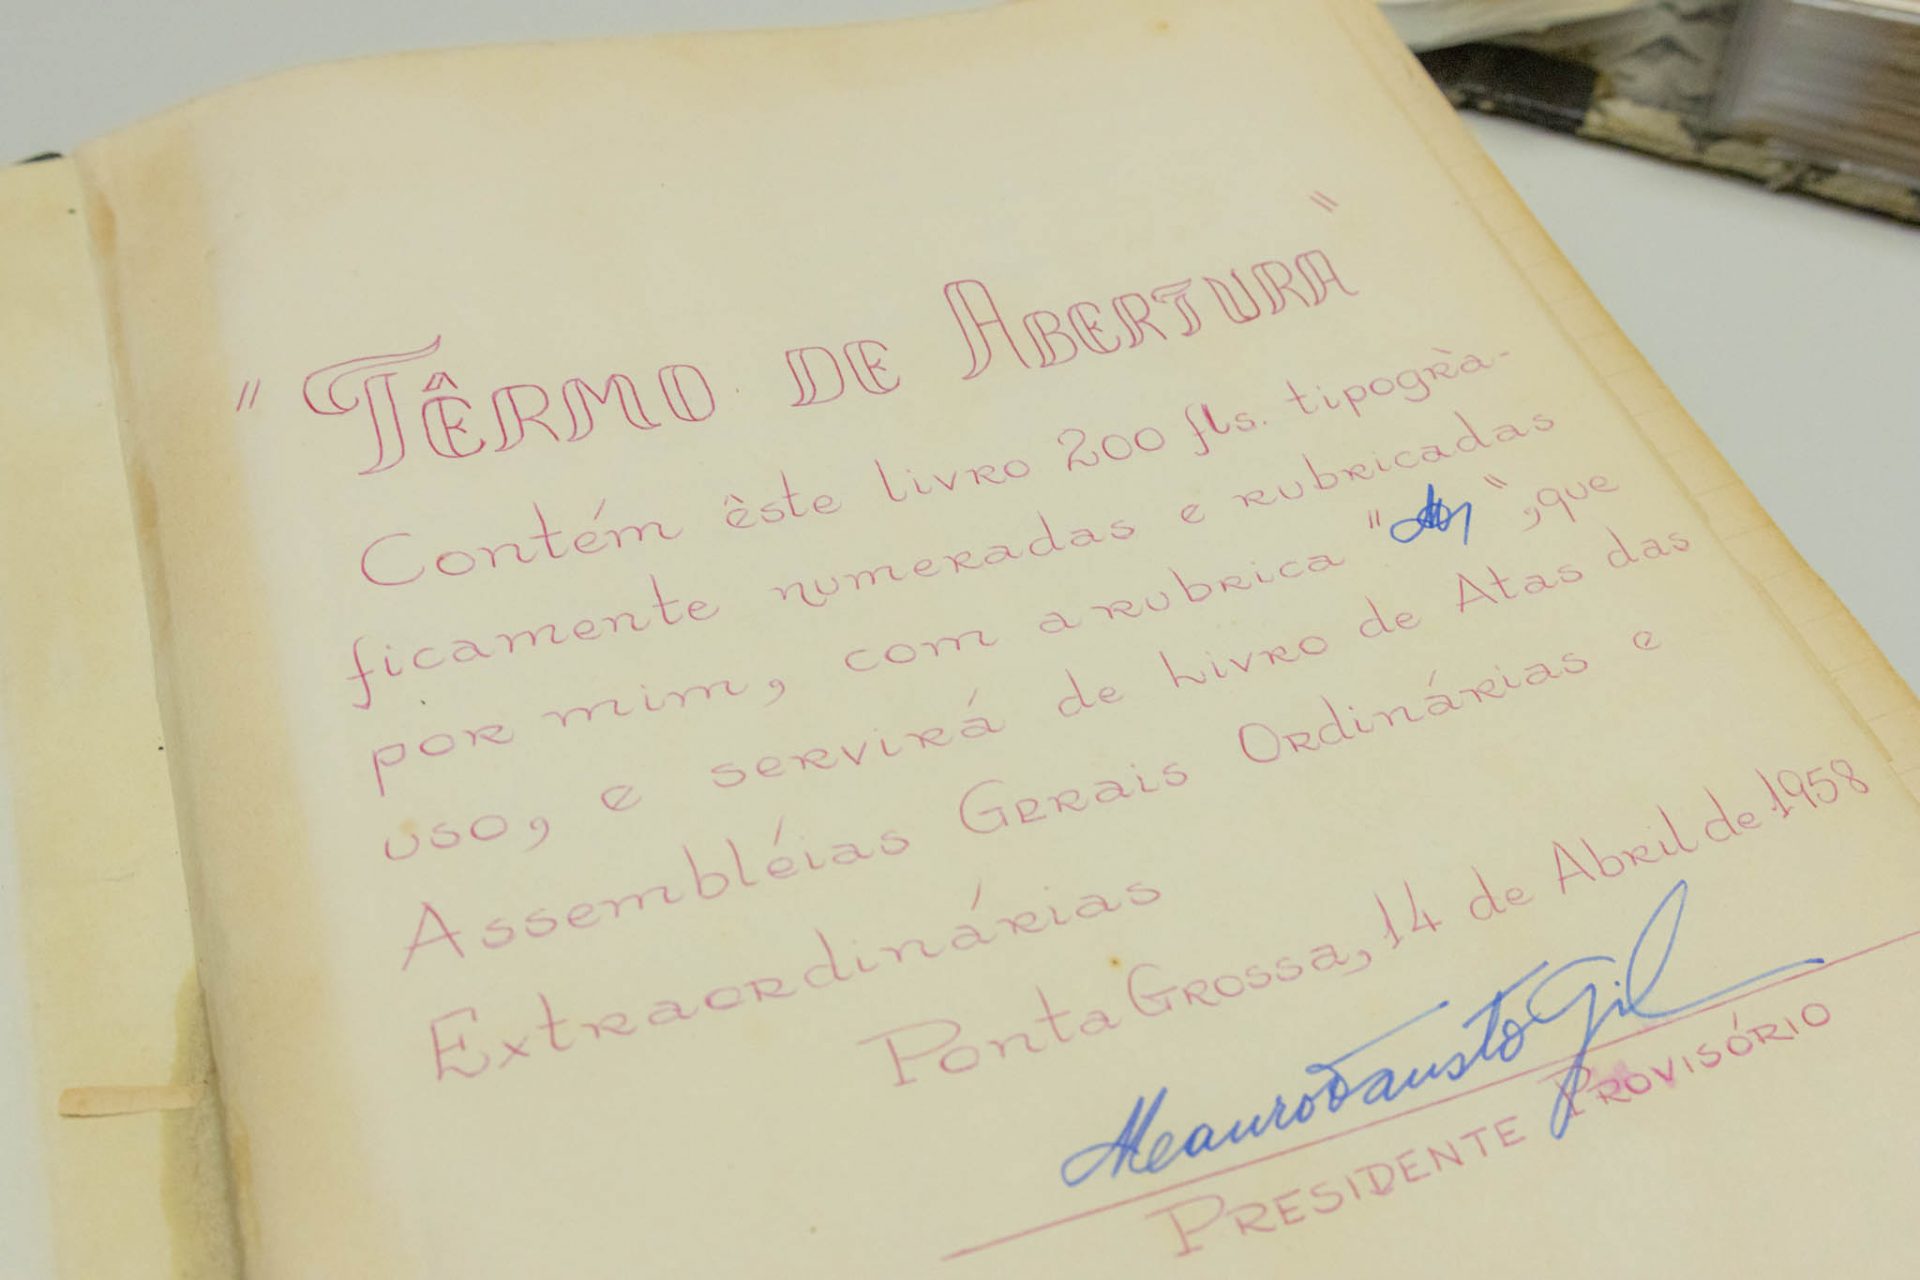 " TÊRMO DE ABERTURA "
Contém êste livro 200 fls. tipogrà-
ficamente numeradas e rubricadas
por mim, com a rubrica " ", que
uso, e servirá de Livro de Atas das
Assembléias Gerais Ordinárias e
Extraordinárias
Ponta Grossa, 14 de Abril de 1958
Mauro Fausto Gil
PRESIDENTE PROVISÓRIO